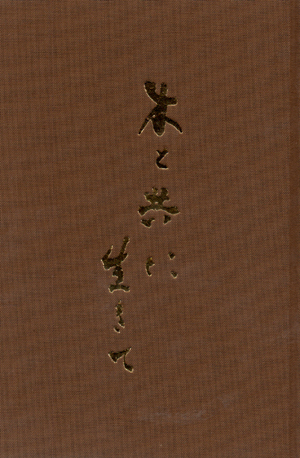 米と共に
生きて